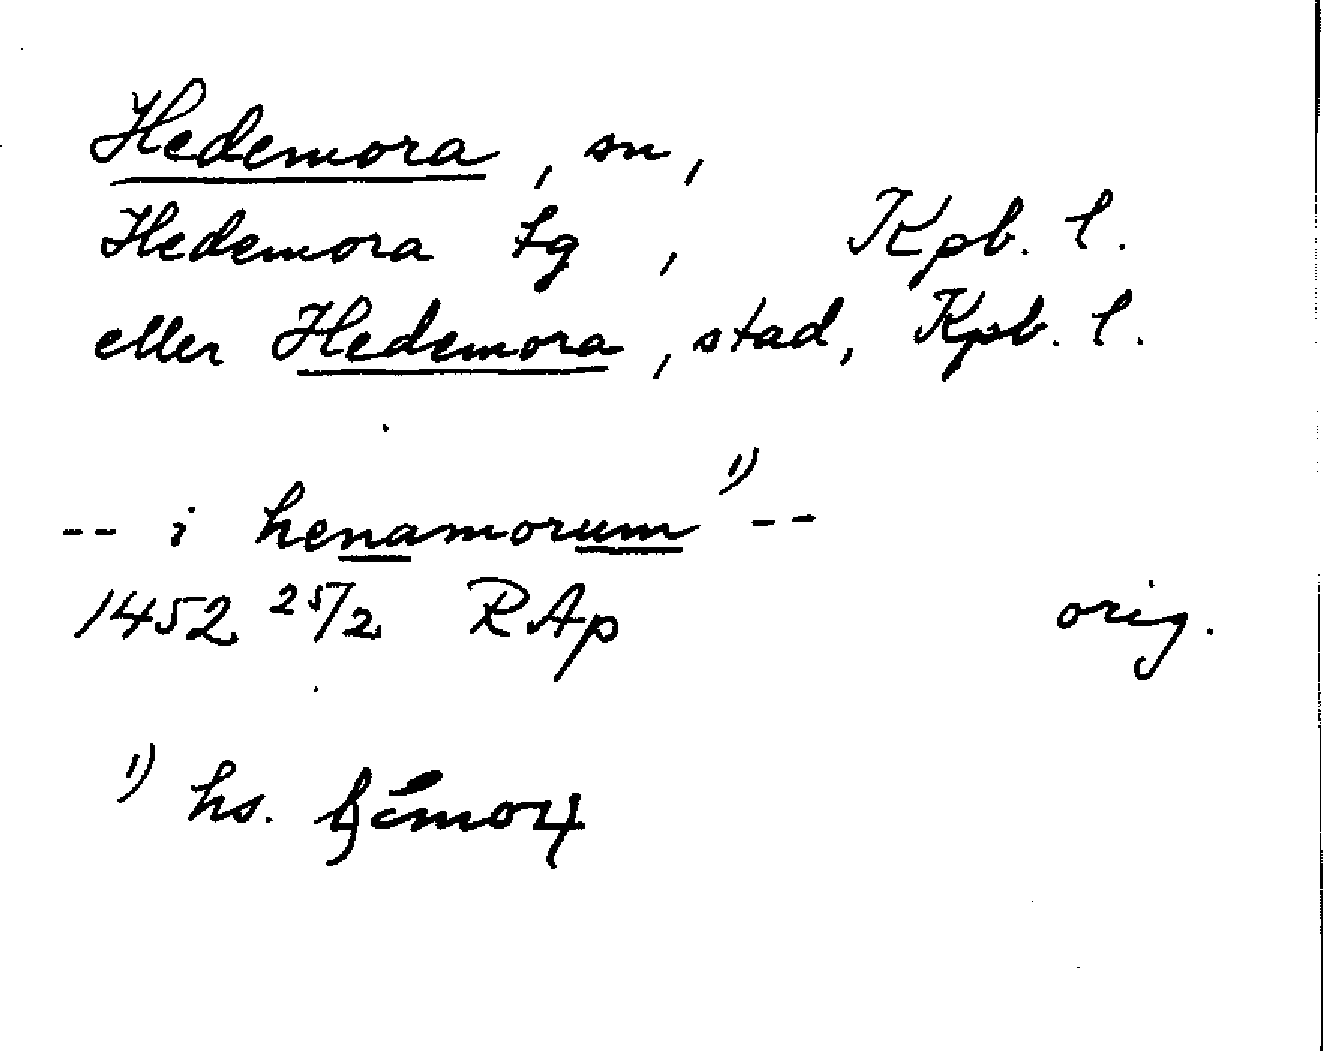 Hedemora, sn,
Hedemora tg, Kpb. l.
eller Hedemora, stad, Kpb. l.
-- i henamorum ¹⁾ --
1452 25/2 RAp orig.
¹⁾ hs.